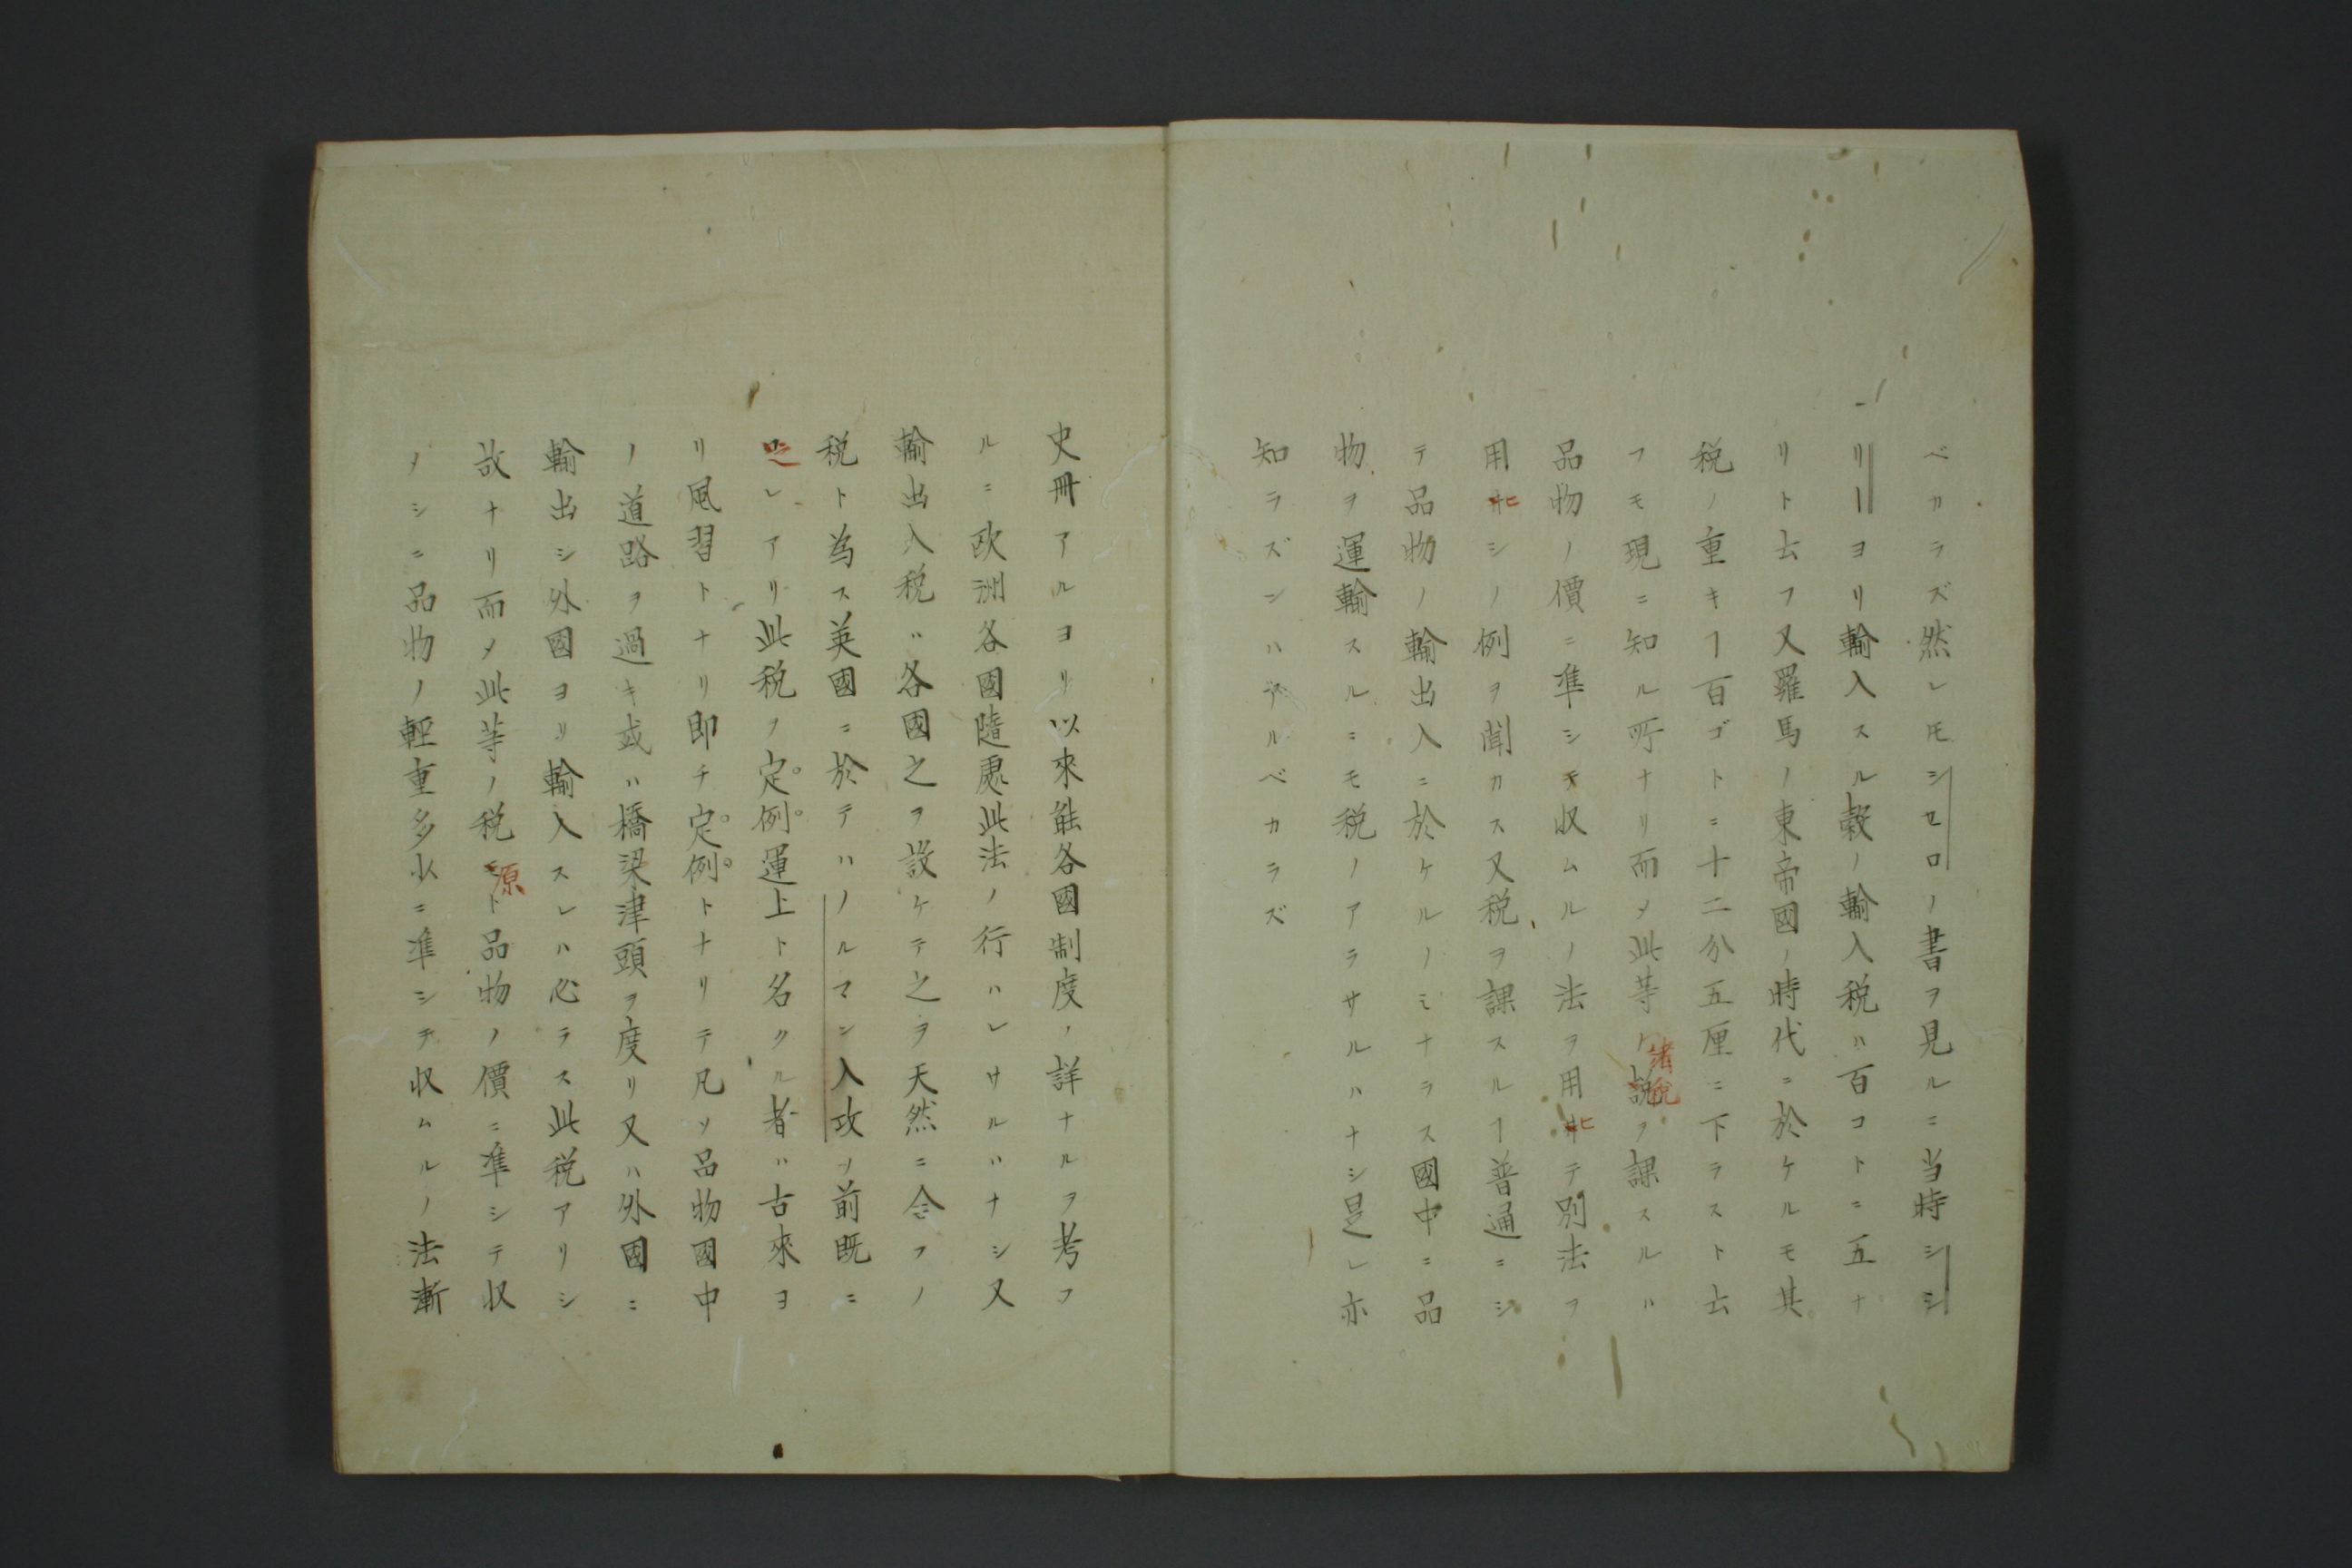 ベカラズ然レ𪜈シセロノ書ヲ見ルニ当時シシ
リーヨリ輸入スル穀ノ輸入税ハ百コトニ五ナ
リト云フ又羅馬ノ東帝國ノ時代ニ於ケルモ其
税ノ重キヿ百ゴトニ十二分五厘ニ下ラスト云
フモ現ニ知ル所ナリ而〆此等ノ諸税ヲ課スルハ
品物ノ價ニ準シテ収ムルノ法ヲ用ヒテ別法ヲ
用ヒシノ例ヲ聞カス又税ヲ課スルヿ普通ニシ
テ品物ノ輸出入ニ於ケルノミナラス國中ニ品
物ヲ運輸スルニモ税ノアラサルハナシ是レ亦
知ラズンハアルベカラズ
史冊アルヨリ以來能各國制度ノ詳ナルヲ考フ
ルニ欧洲各國隨處此法ノ行ハレサルハナシ又
輸出入税ハ各國之ヲ設ケテ之ヲ天然ニ合フノ
税ト為ス英國ニ於テハノルマン入攻ノ前既ニ
是レアリ此税ヲ定例運上ト名クル者ハ古來ヨ
リ風習トナリ即チ定例トナリテ凡ソ品物國中
ノ道路ヲ過キ或ハ橋梁津頭ヲ度リ又ハ外國ニ
輸出シ外國ヨリ輸入スレハ必ラス此税アリシ
故ナリ而〆此等ノ税源ト品物ノ價ニ準シテ収
メシニ品物ノ輕重多少ニ準シテ収ムルノ法漸